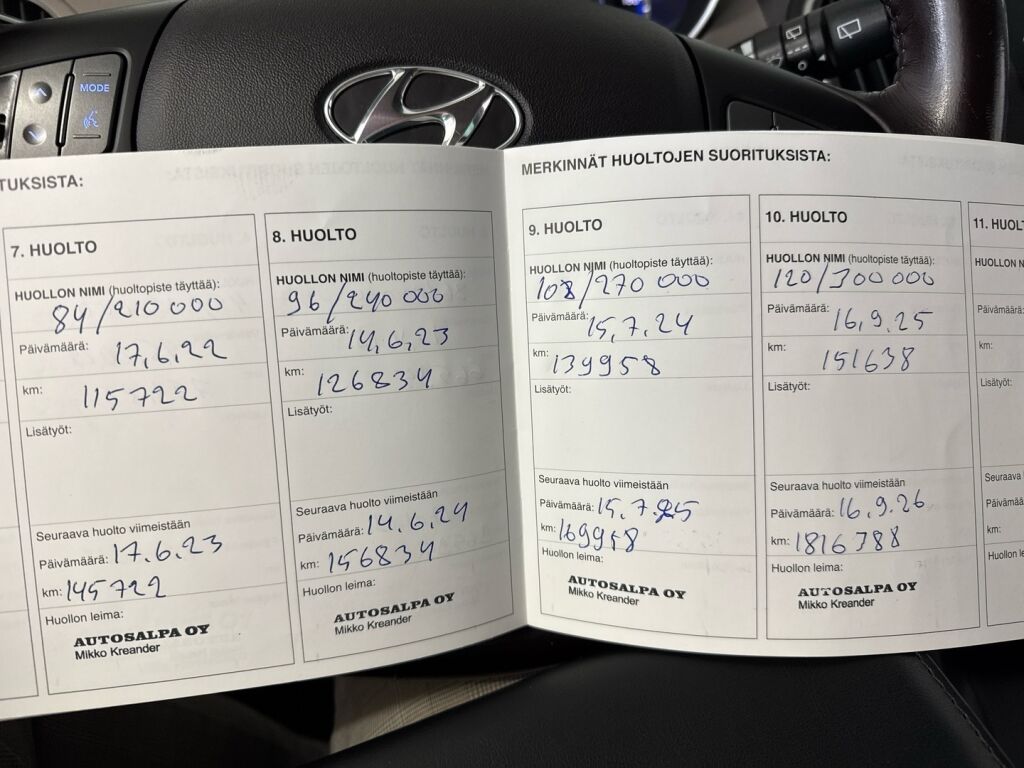 MODE
TUKSISTA:
7. HUOLTO
HUOLLON NIMI (huoltopiste täyttää):
84/210 000
Päivämäärä: 17.6.22
km: 115722
Lisätyöt:
Seuraava huolto viimeistään
Päivämäärä: 17.6.23
km: 145722
Huollon leima:
AUTOSALPA OY
Mikko Kreander
8. HUOLTO
HUOLLON NIMI (huoltopiste täyttää):
96/240 000
Päivämäärä: 14.6.23
km: 126834
Lisätyöt:
Seuraava huolto viimeistään
Päivämäärä: 14.6.24
km: 156834
Huollon leima:
AUTOSALPA OY
Mikko Kreander
MERKINNÄT HUOLTOJEN SUORITUKSISTA:
9. HUOLTO
HUOLLON NIMI (huoltopiste täyttää):
108/270 000
Päivämäärä: 15.7.24
km: 139958
Lisätyöt:
Seuraava huolto viimeistään
Päivämäärä: 15.7.25
km: 169958
Huollon leima:
AUTOSALPA OY
Mikko Kreander
10. HUOLTO
HUOLLON NIMI (huoltopiste täyttää):
120/300 000
Päivämäärä: 16.9.25
km: 151638
Lisätyöt:
Seuraava huolto viimeistään
Päivämäärä: 16.9.26
km: 1816388
Huollon leima:
AUTOSALPA OY
Mikko Kreander
11. HUOLT
HUOLLON N
Päivämäärä:
km:
Lisätyöt:
Seuraava h
Päivämää
km:
Huollon le